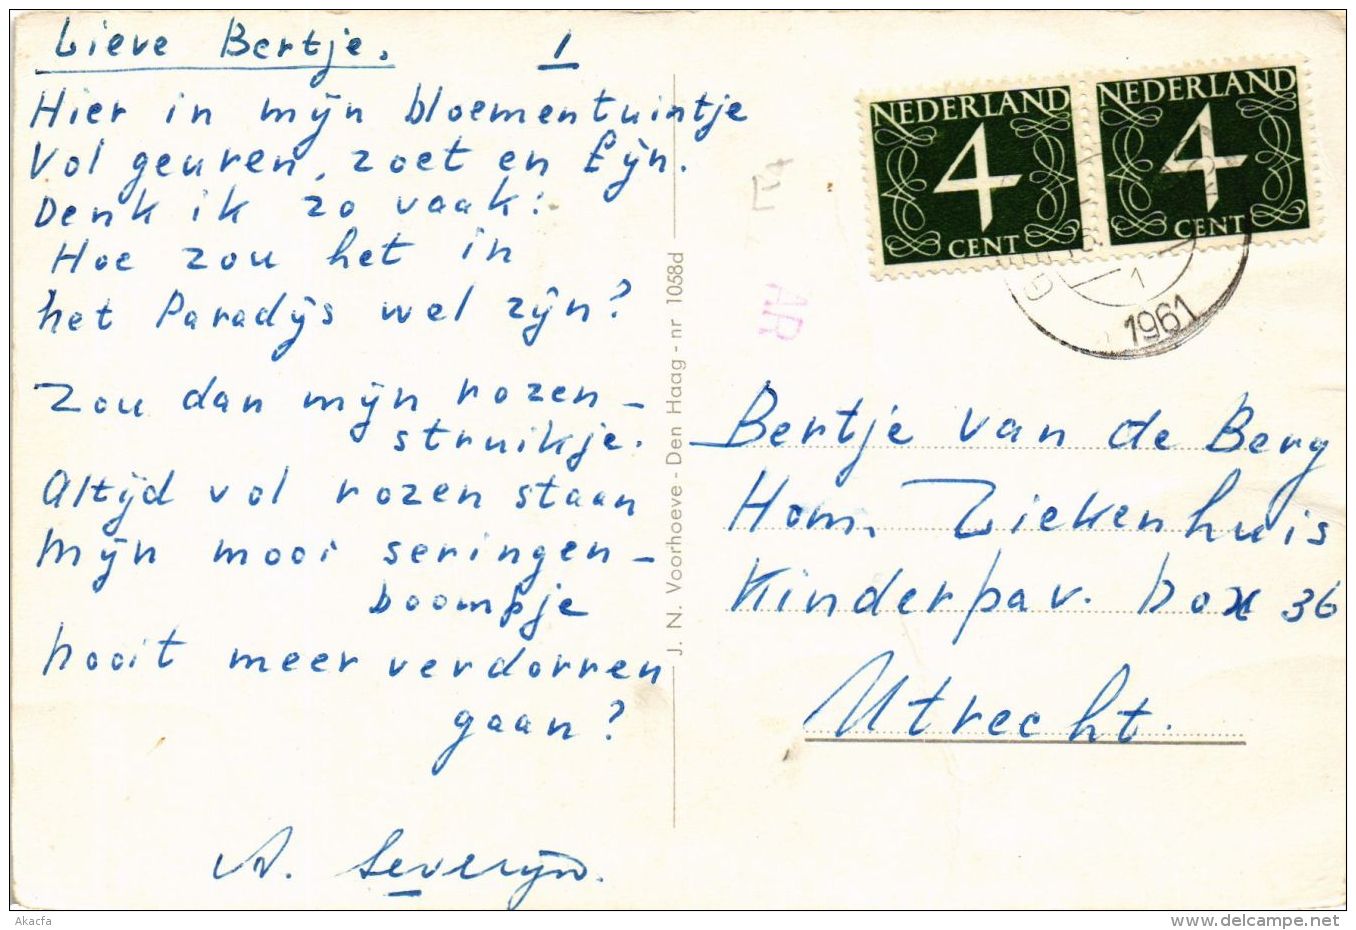 Lieve Bertje. 1
Hier in mijn bloementuintje
Vol geuren, zoet en fijn.
Denk ik zo vaak:
Hoe zou het in
het Paradijs wel zijn?
Zou dan mijn rozen-
struikje.
Altijd vol rozen staan
Mijn mooi seringen-
boompje
nooit meer verdorren
gaan?
A. Severijn.
J. N. Voorhoeve - Den Haag - nr 1058d
AR
NEDERLAND
4
CENT
NEDERLAND
4
CENT
1
1961
Bertje van de Berg
Hom. Ziekenhuis
Kinderpav. box 36
Utrecht.
Akacfa
www.delcampe.net